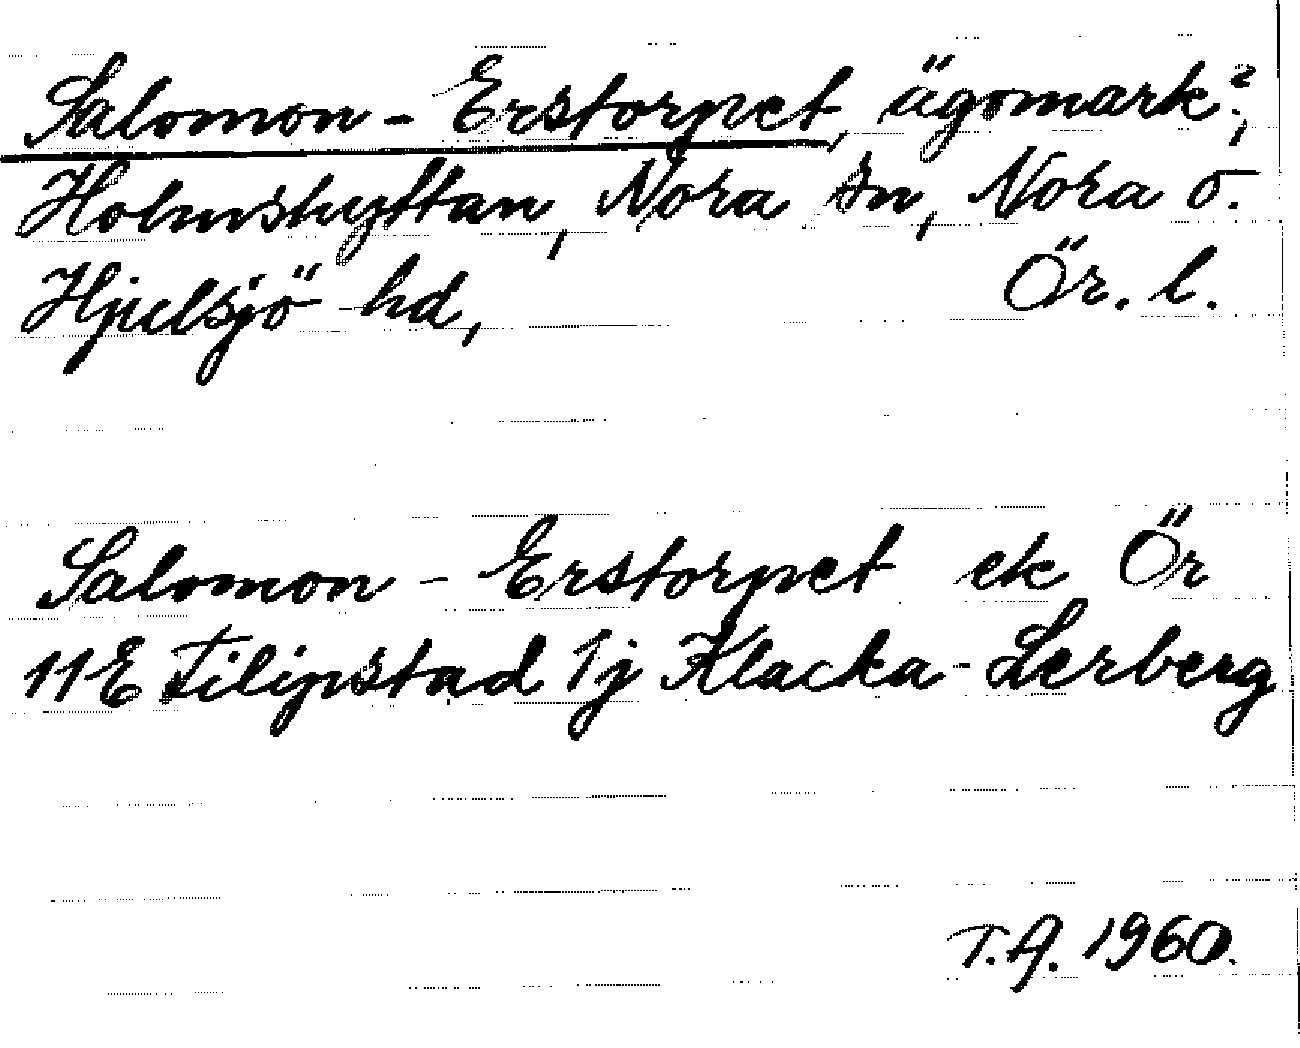 Salomon-Erstorpet, ägomark?,
Holmshyttan, Nora sn, Nora o.
Hjulsjö hd, Ör. l.
Salomon-Erstorpet ek Ör
11E Filipstad 1j Klacka-Lerberg
T.A. 1960.